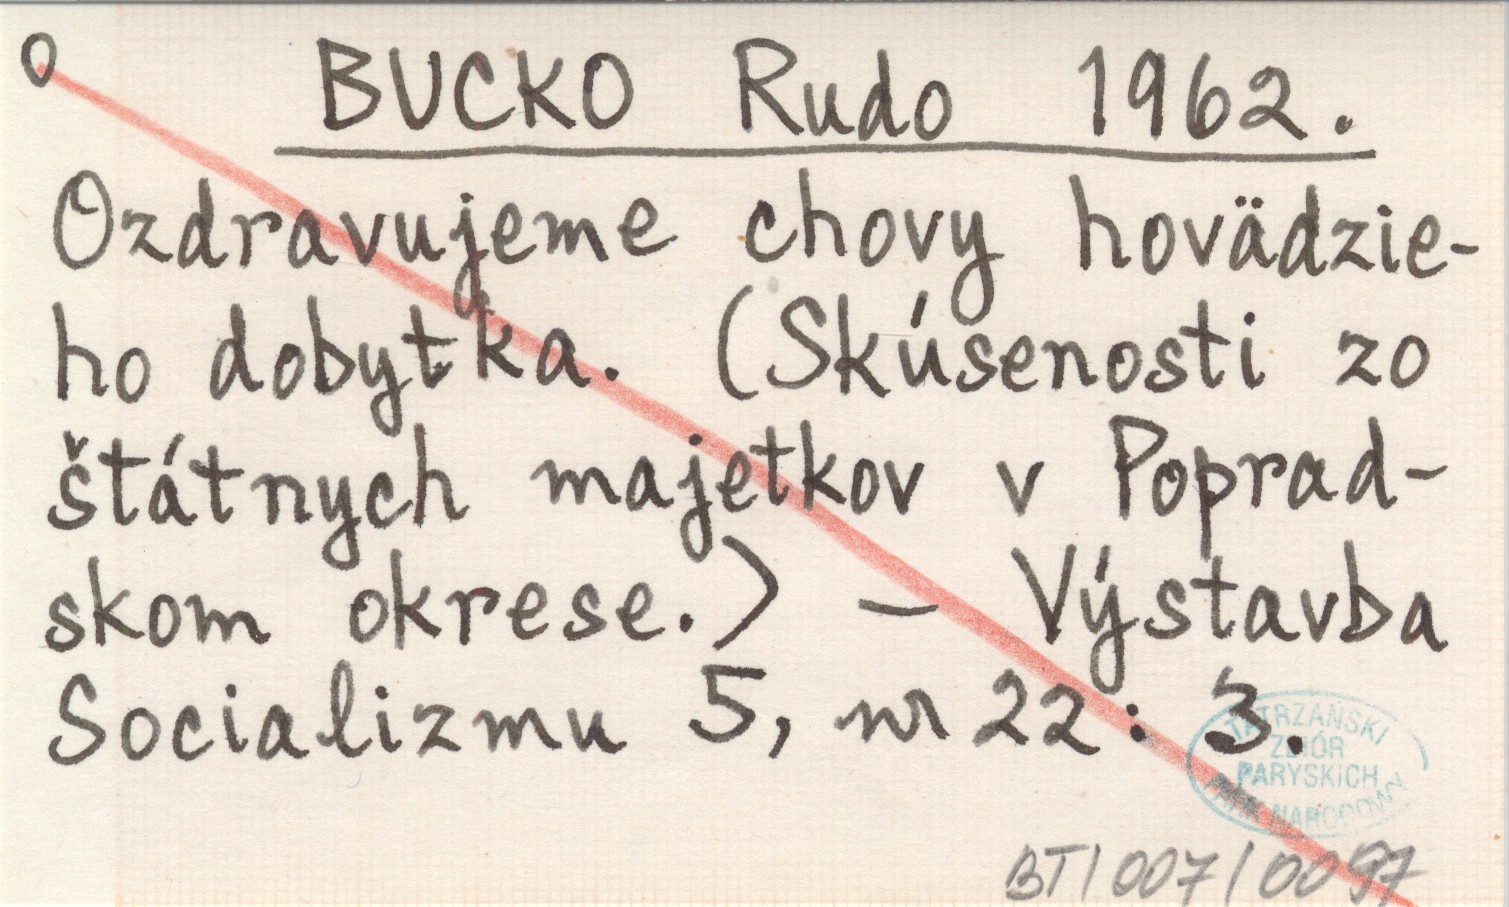 0 BUCKO Rudo 1962.
Ozdravujeme chovy hovädzie-
ho dobytka. (Skúsenosti zo
štátnych majetkov v Poprad-
skom okrese.) – Výstavba
Socializmu 5, nr 22: 3.
TATRZAŃSKI
ZBIÓR
PARYSKICH
PARK NARODOWY
BT/007/0097